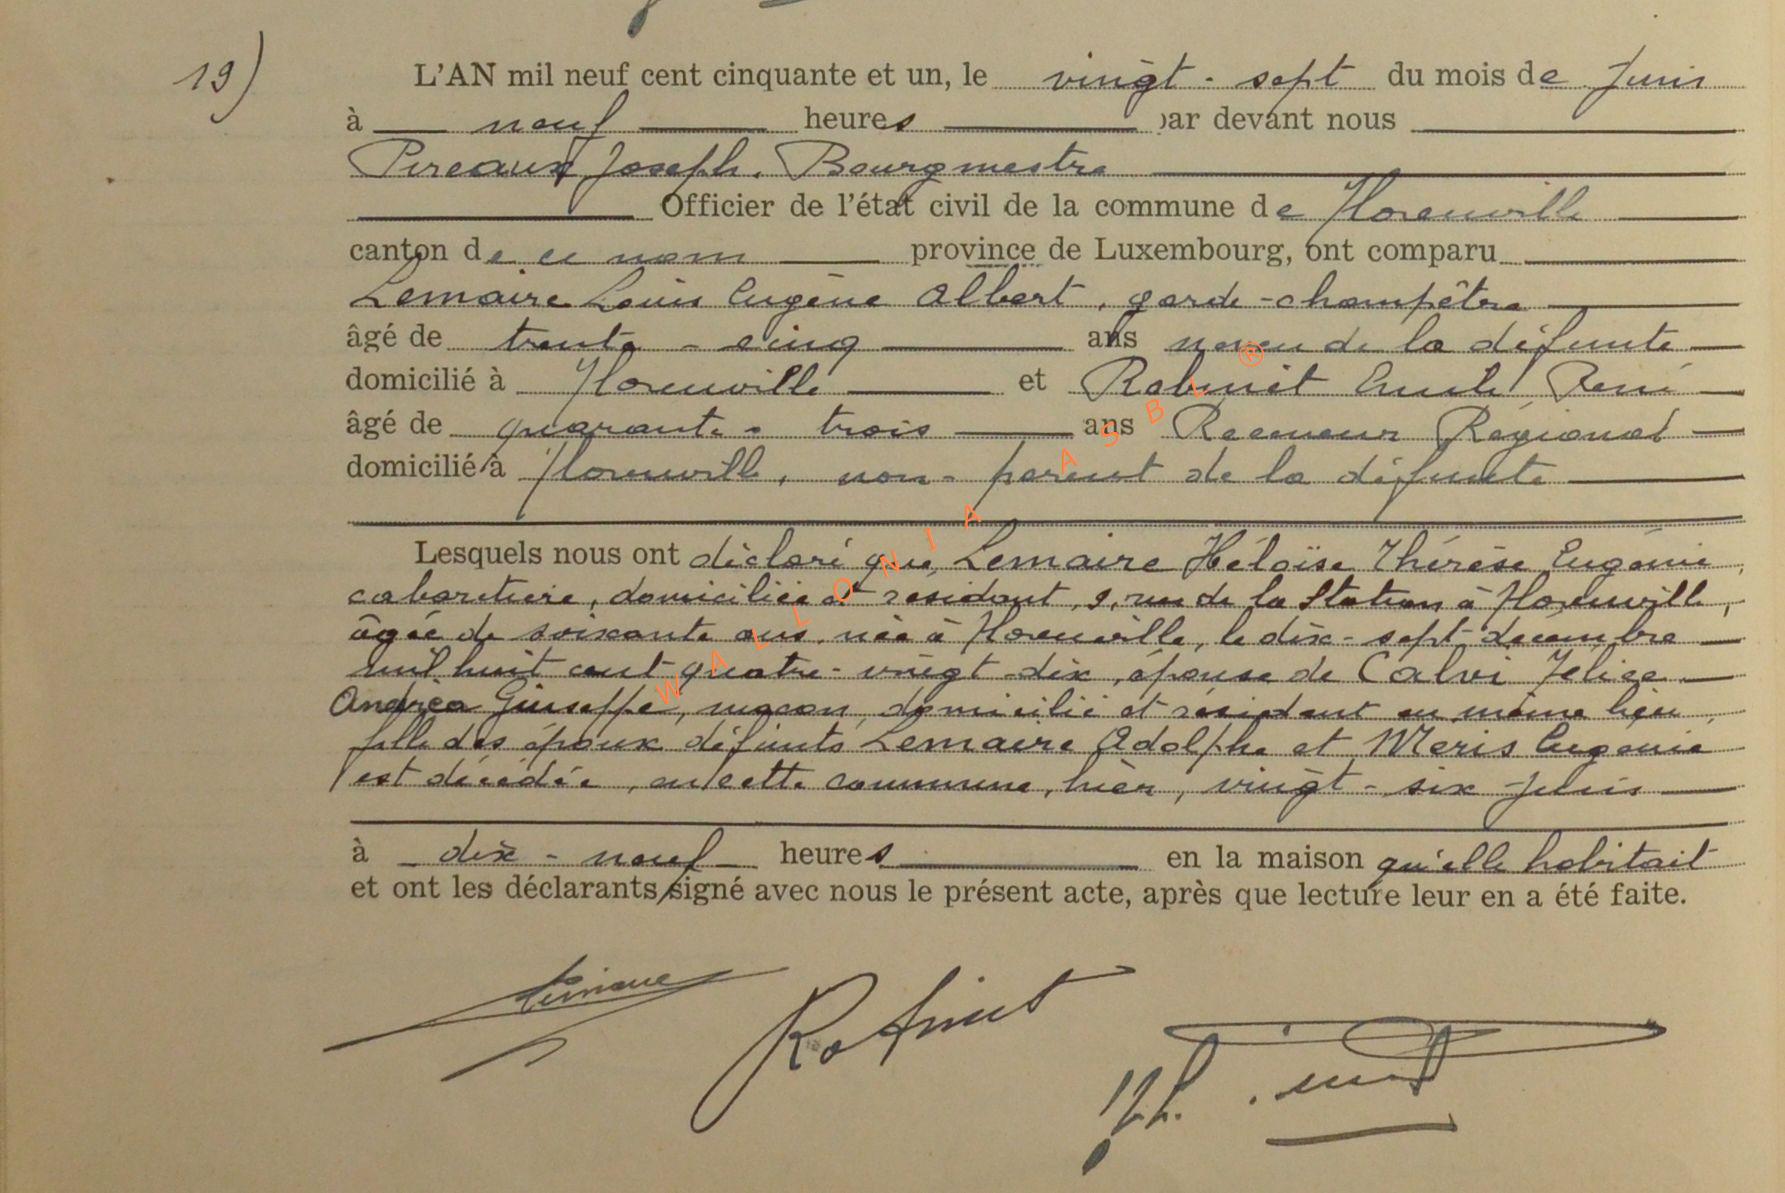 19)
L'AN mil neuf cent cinquante et un, le vingt-sept du mois de Juin
à neuf heures par devant nous
Pireaux Joseph. Bourgmestre
Officier de l'état civil de la commune de Florenville
canton de ce nom province de Luxembourg, ont comparu
Lemaire Louis Eugène Albert, garde-champêtre
âgé de trente-cinq ans neveu de la défunte
domicilié à Florenville et Robinet Emile René
âgé de quarante-trois ans Receveur Régional
domicilié à Florenville, non-parent de la défunte
Lesquels nous ont déclaré que Lemaire Héloïse Thérèse Eugénie,
cabaretière, domiciliée et résidant, 9, rue de la Station à Florenville,
âgée de soixante ans, née à Florenville, le dix-sept décembre
mil huit cent quatre-vingt-dix, épouse de Calvi Felice
Andréa Giuseppe, maçon, domicilié et résidant au même lieu,
fille des époux défunts Lemaire Adolphe et Meris Eugénie
est décédée, en cette commune, hier, vingt-six juin
à dix-neuf heures en la maison qu'elle habitait
et ont les déclarants signé avec nous le présent acte, après que lecture leur en a été faite.
Robinet
WALLONIA ASBL ®